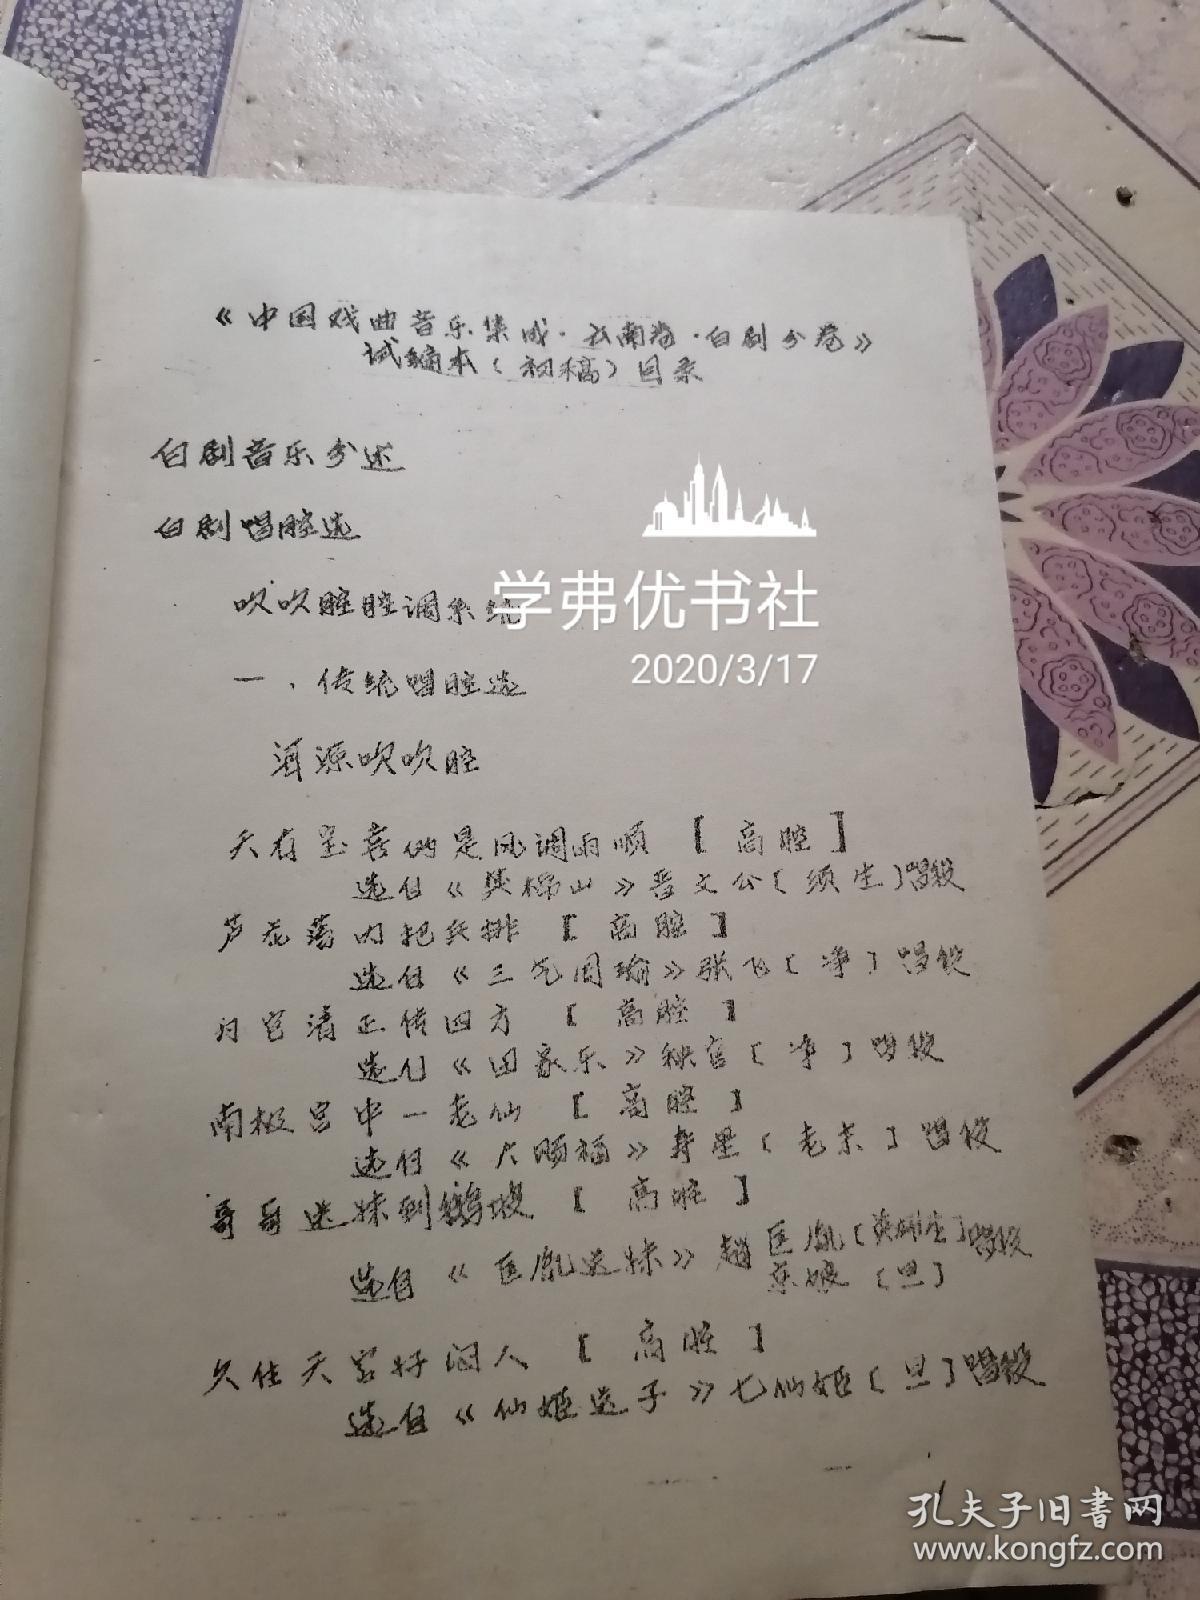 《中国戏曲音乐集成·云南卷·白剧分卷》
试编本(初稿)目录
白剧音乐分述
白剧唱腔选
吹吹腔腔调系统
一、传统唱腔选
洱源吹吹腔
学弗优书社
2020/3/17
天有 是风调雨顺 [高腔]
选自《 山》晋文公[须生]唱段
芦花荡内把兵排 [高腔]
选自《三气周瑜》张飞[净]唱段
官清正传四方 [高腔]
选自《田家乐》秧官[净]唱段
南极宫中一老仙 [高腔]
选自《大赐福》寿星[老末]唱段
哥哥送妹到 坡 [高腔]
选自《匡胤送妹》赵匡胤[英雄生]唱段
京娘[旦]
久住天宫好闷人 [高腔]
选自《仙姬送子》七仙姬[旦]唱段
1
孔夫子旧书网
www.kongfz.com